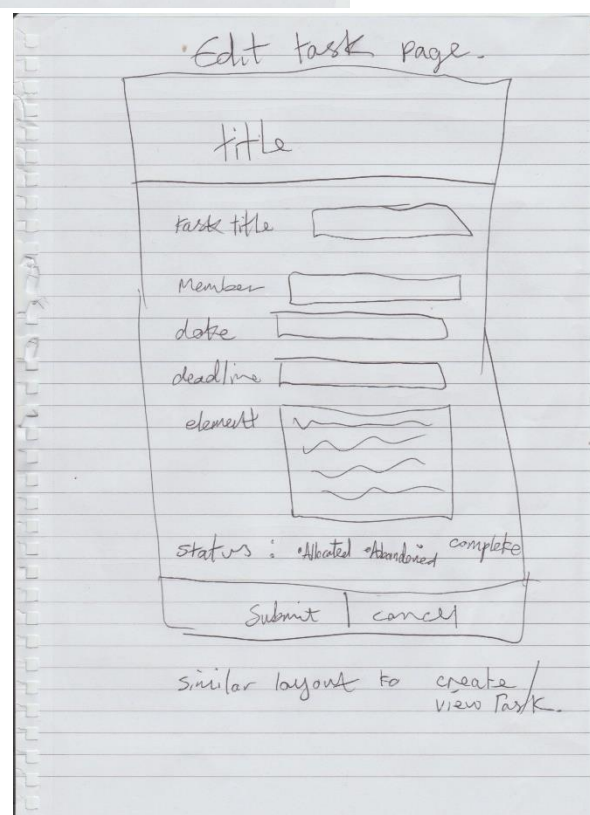 Edit task page.
title
task title
Member
date
deadline
element
status : •Allocated •Abandoned complete
Submit | cancel
similar layout to create/
view Task.